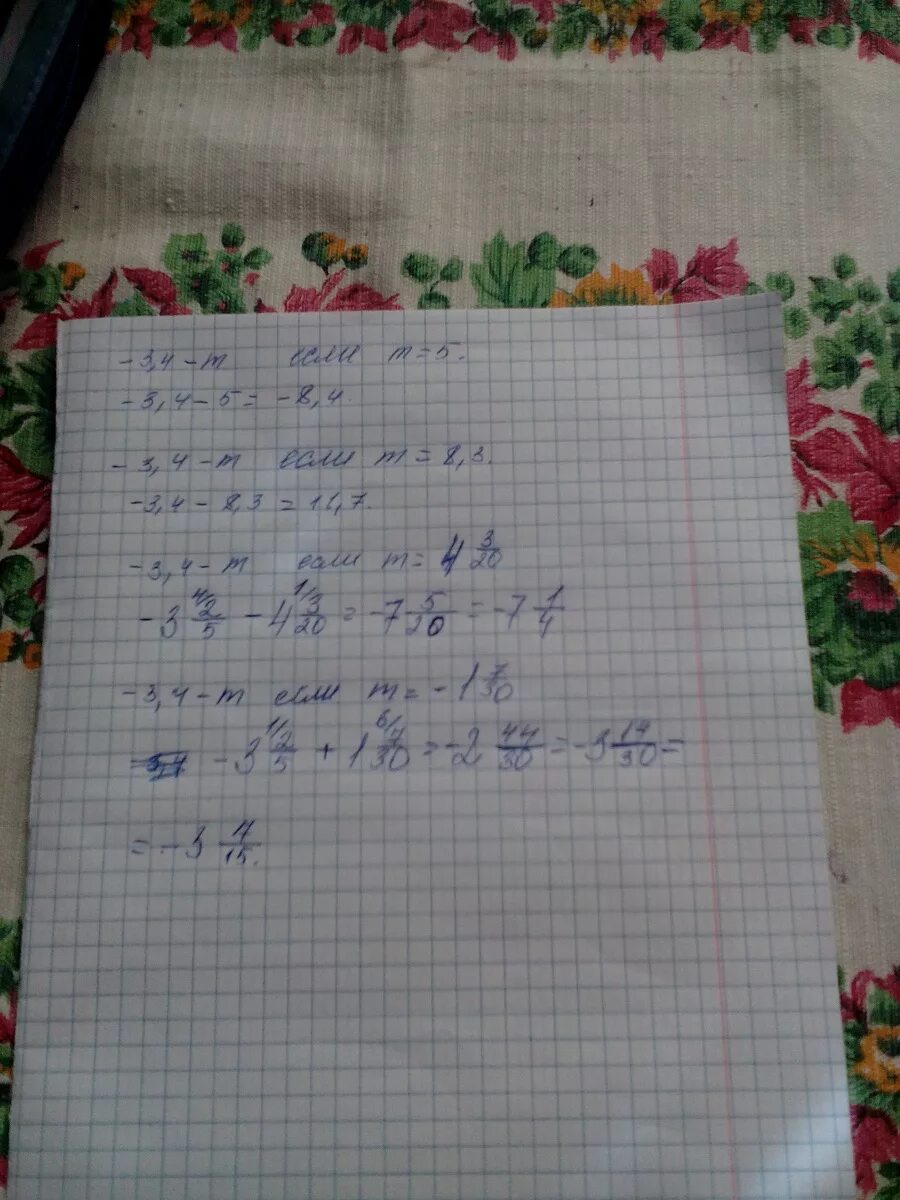 -3,4-m если m=5.
-3,4-5=-8,4.
-3,4-m если m=8,3.
-3,4-8,3=11,7.
-3,4-m если m=4 3/20
-3 4/ 2/5 - 4 1/ 3/20 = -7 5/20 = -7 1/4
-3,4-m если m=-1 7/30
-3 1/ 2/5 + 1 6/ 7/30 = -2 44/30 = -3 14/30 =
= -3 4/15.